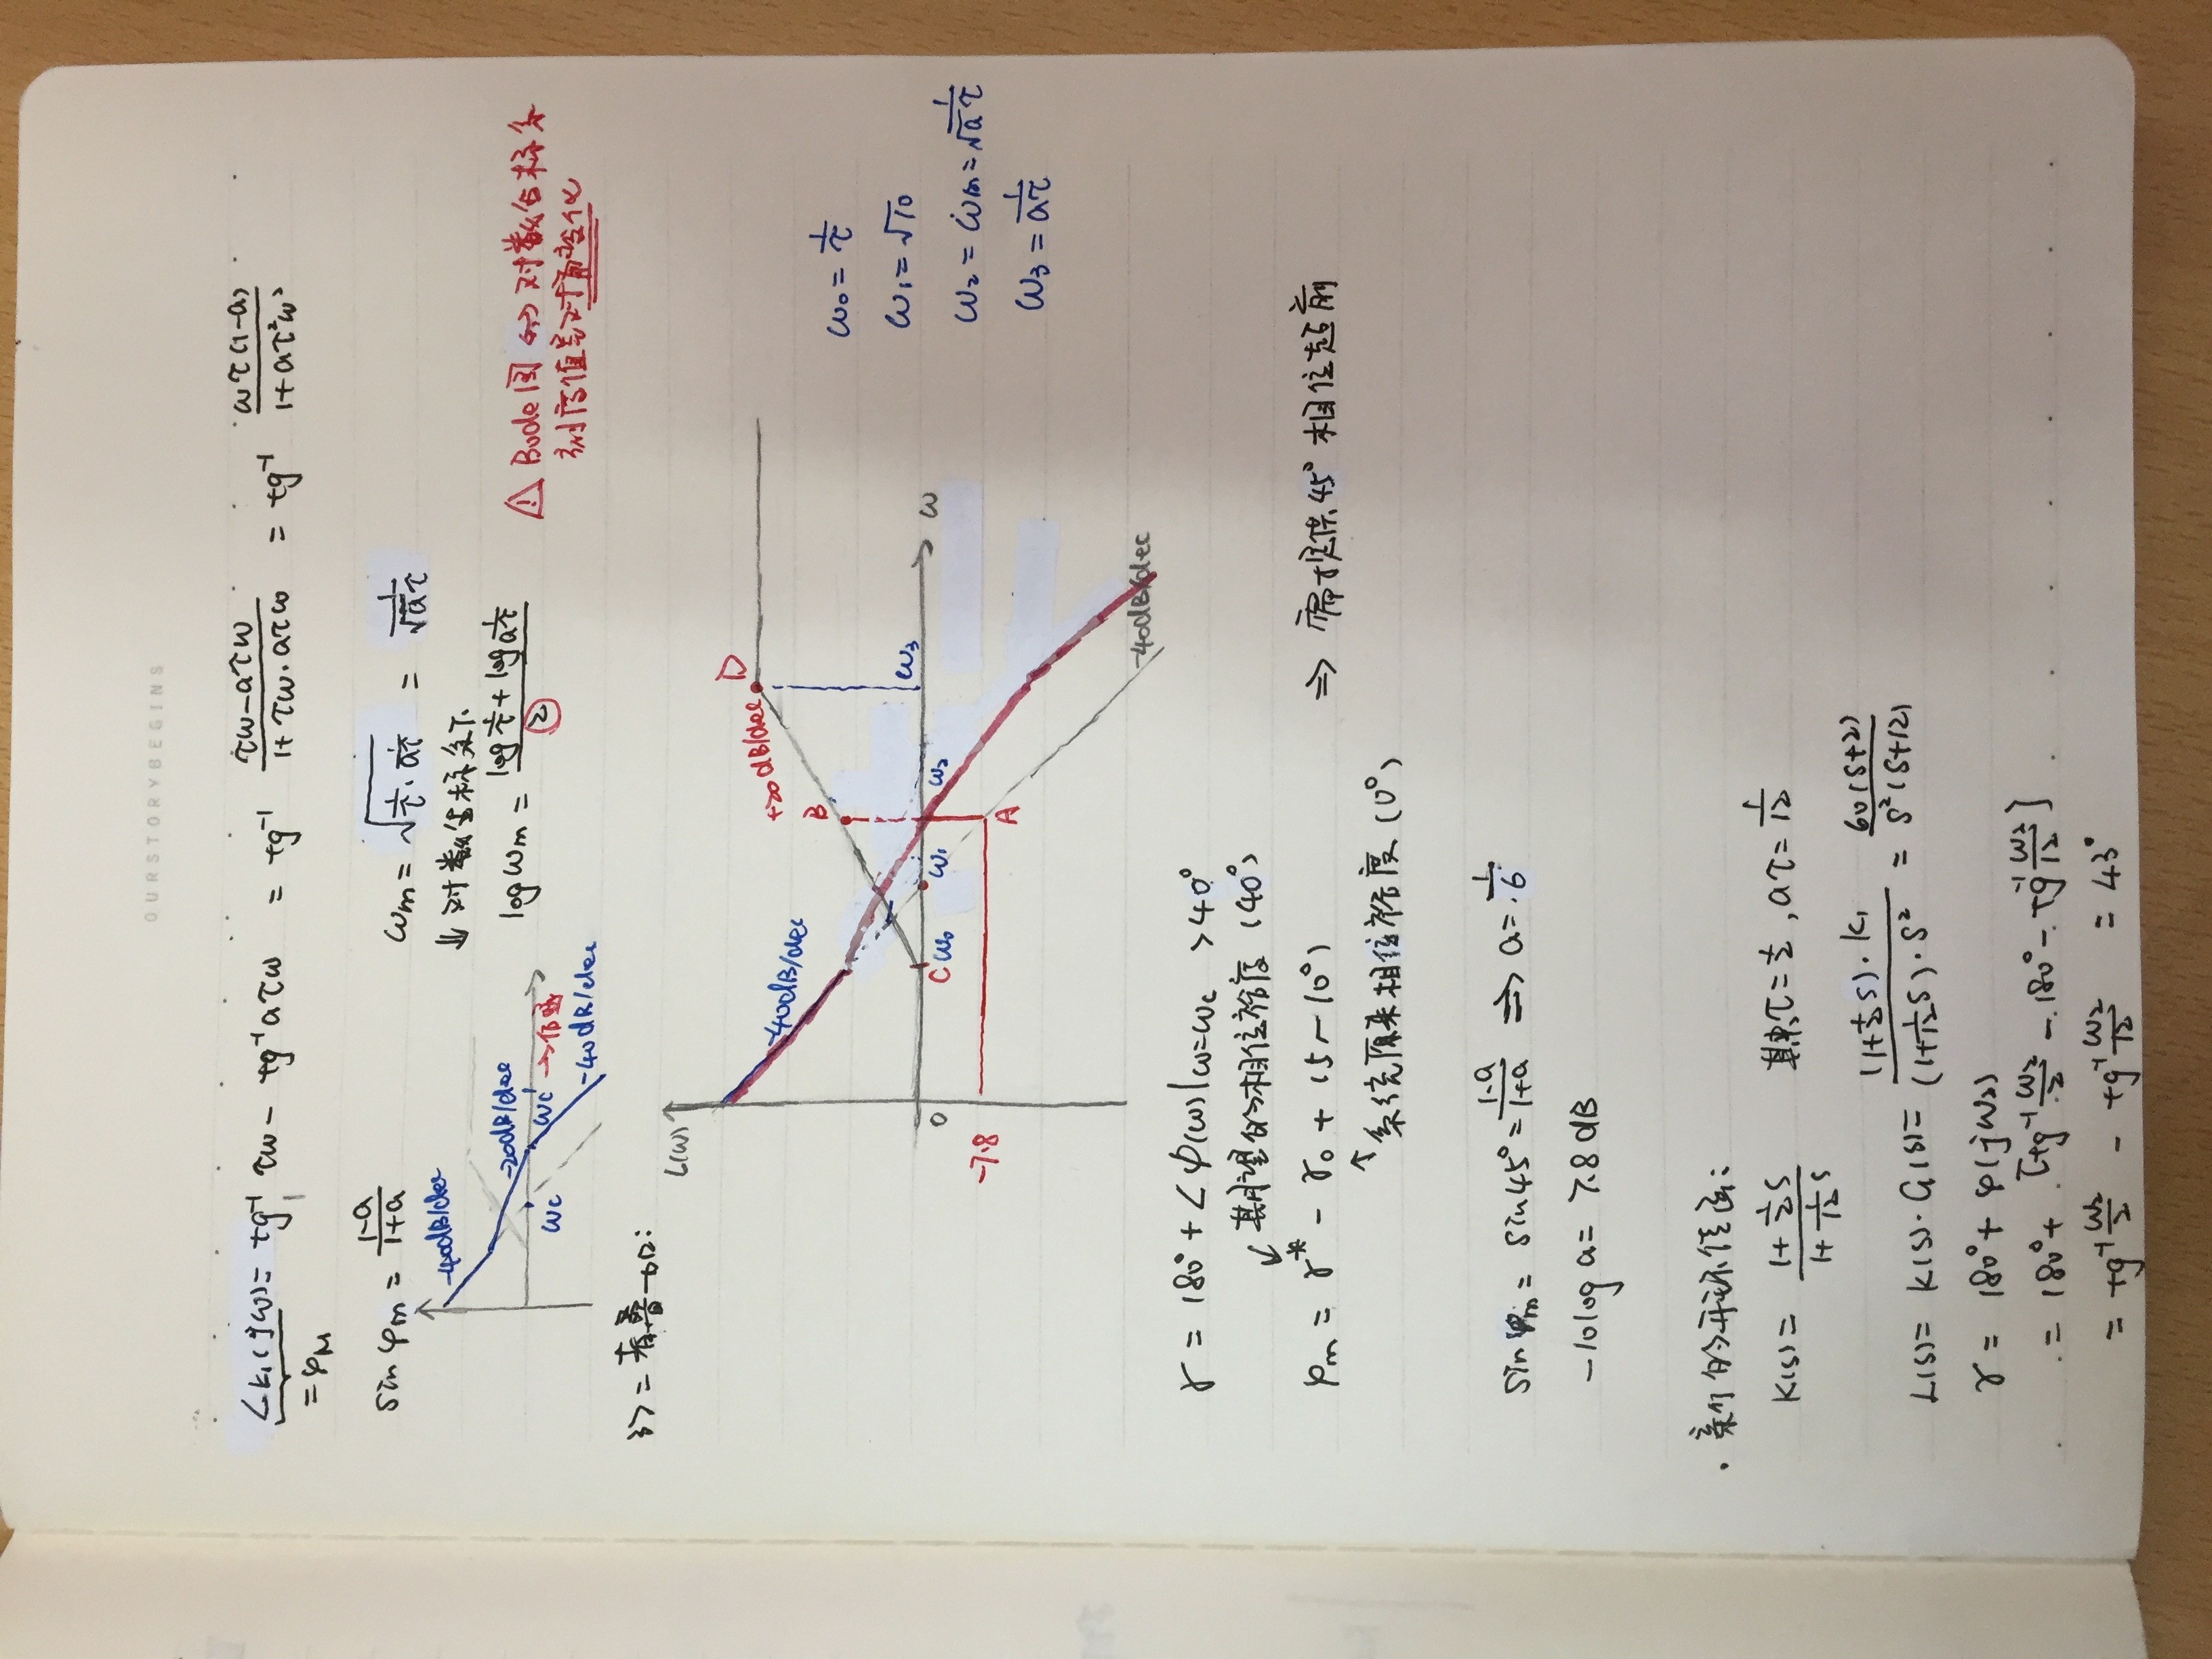 OURSTORYBEGINS
∠K₁(jω) = tg⁻¹ τω − tg⁻¹ aτω = tg⁻¹ (τω−aτω)/(1+τω·aτω) = tg⁻¹ ωτ(1-a)/(1+aτ²ω²)
= φM
sin φm = (1-a)/(1+a)
ωm = √(1/τ · 1/aτ) = 1/(√a τ)
↓ 对数坐标系下
log ωm = (log 1/τ + log 1/aτ)/2
-40dB/dec
-20dB/dec
ωc
ωc'
-40dB/dec
⚠ Bode图 ↔ 对数坐标系
刻度值是对数变化
L(ω)
-40dB/dec
+20dB/dec
D
B
C
ω₀
ω₁
ω₂
ω₃
ω
0
-7.8
A
-40dB/dec
ω₀ = 1/τ
ω₁ = √10
ω₂ = ωm = 1/(√a τ)
ω₃ = 1/aτ
γ = 180° + ∠φ(ω)|ω=ωc >40°
↙ 期望的相位裕度 (40°)
φm = γ* − γ₀ + (5~10°) ⇒ 需提供45°相位超前
↑ 系统原来相位裕度 (0°)
sin φm = sin45° = (1-a)/(1+a) ⇒ a = 1/6
−10log a = 7.8 dB
· 新的开环传函:
K(s) = (1+½s)/(1+1/12 s) 其中τ=½, aτ=1/12
L(s) = K(s)·G(s) = (1+½s)·K₁/((1+1/12 s)·s²) = 60(s+2)/(s²(s+12))
γ = 180°+ φ(jω₂)
= 180°+ [tg⁻¹ ω₂/2 − 180° − tg⁻¹ ω₂/12]
= tg⁻¹ ω₂/2 − tg⁻¹ ω₂/12 = 43°